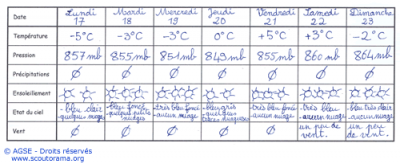 Date Lundi 17 Mardi 18 Mercredi 19 Jeudi 20 Vendredi 21 Samedi 22 Dimanche 23
Température -5°C -3°C -3°C 0°C +5°C +3°C -2°C
Pression 857mb 855mb 851mb 849mb 855mb 860mb 864mb
Précipitations Ø Ø Ø Ø Ø Ø Ø
Ensoleillement
Etat du ciel -bleu clair -bleu foncé -très bleu foncé -bleu gris -très bleu foncé -très bleu -bleu très clair
-quelques nuages -quelques petits nuages -aucun nuage -quelques nuages -aucun nuage -aucun nuage -aucun nuage
Vent Ø Ø Ø Ø Ø un peu de vent. un peu de vent.
© AGSE - Droits réservés
www.scoutorama.org